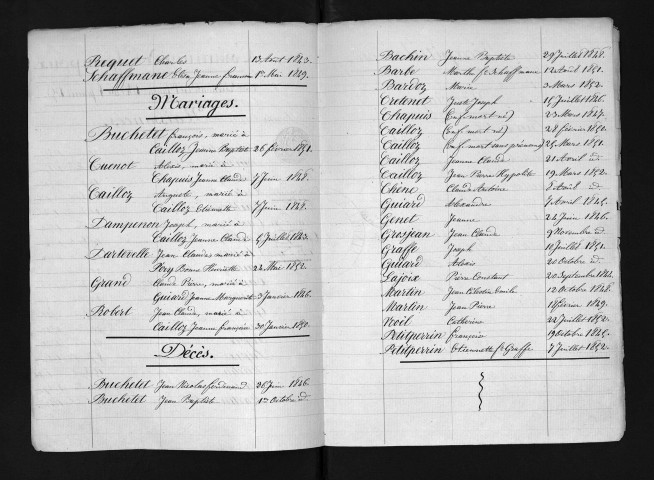 Reguet Charles 13 Août 1843.
Schaffmane Elisa Jeanne 1er Mai 1849.
Mariages.
Buchetet françois, marié à
Cailloz Jeanne Baptiste 26 février 1851.
Cuenot Alexis, marié à
Chapuis Jeanne Claude Juin 1848.
Cailloz Auguste, marié à
Cailloz Etiennette Juin 1848.
Damperon Joseph, marié à
Cailloz Jeanne Claude 5 Juillet 1843.
Jean Claude marié à
Henriette 24 Mai 1852.
Grand Claude Pierre, marié à
Guiard Jeanne Marguerite 3 Janvier 1846.
Robert Jean Claude, marié à
Cailloz Jeanne françoise 30 Janvier 1850.
Décès.
Buchetet Jean Nicolas ferdinand 26 Juin 1846.
Buchetet Jean Baptiste 1er Octobre id
Bachin Jeanne Baptiste 29 Juillet 1848.
Barbe Marthe fe Schaffmane 12 Août 1851.
Bardoz Marie 3 Mars 1852.
Cretenet Juste Joseph 15 Juillet 1846.
Chapuis (enf. mort né) 23 Mars 1847.
Cailloz (enf. mort né) 28 février 1850.
Cailloz (enf. mort sans prénoms) 25 Mars 1851.
Cailloz Jeanne Claude 21 Avril id
Cailloz Jean Pierre Hyppolite 19 Mars 1852.
Chêne Claude Antoine 8 Août id
Guiard Alexandre 7 Avril 1845.
Genet Jeanne 24 Juin 1846.
Grosjean Jean Claude 9 Novembre id
Graffe Joseph 10 Juillet 1851.
Guiard Alexis 20 Octobre id
Lajoix Pierre Constant 20 Septembre
Martin Jean Célestin Emile 12 Octobre 1848.
Martin Jean Pierre février 1849.
Noil Catherine 22 Juillet 1852.
Petitperrin françoise 9 Octobre 1845.
Petitperrin Etiennette fe Graffe 7 Juillet 1852.